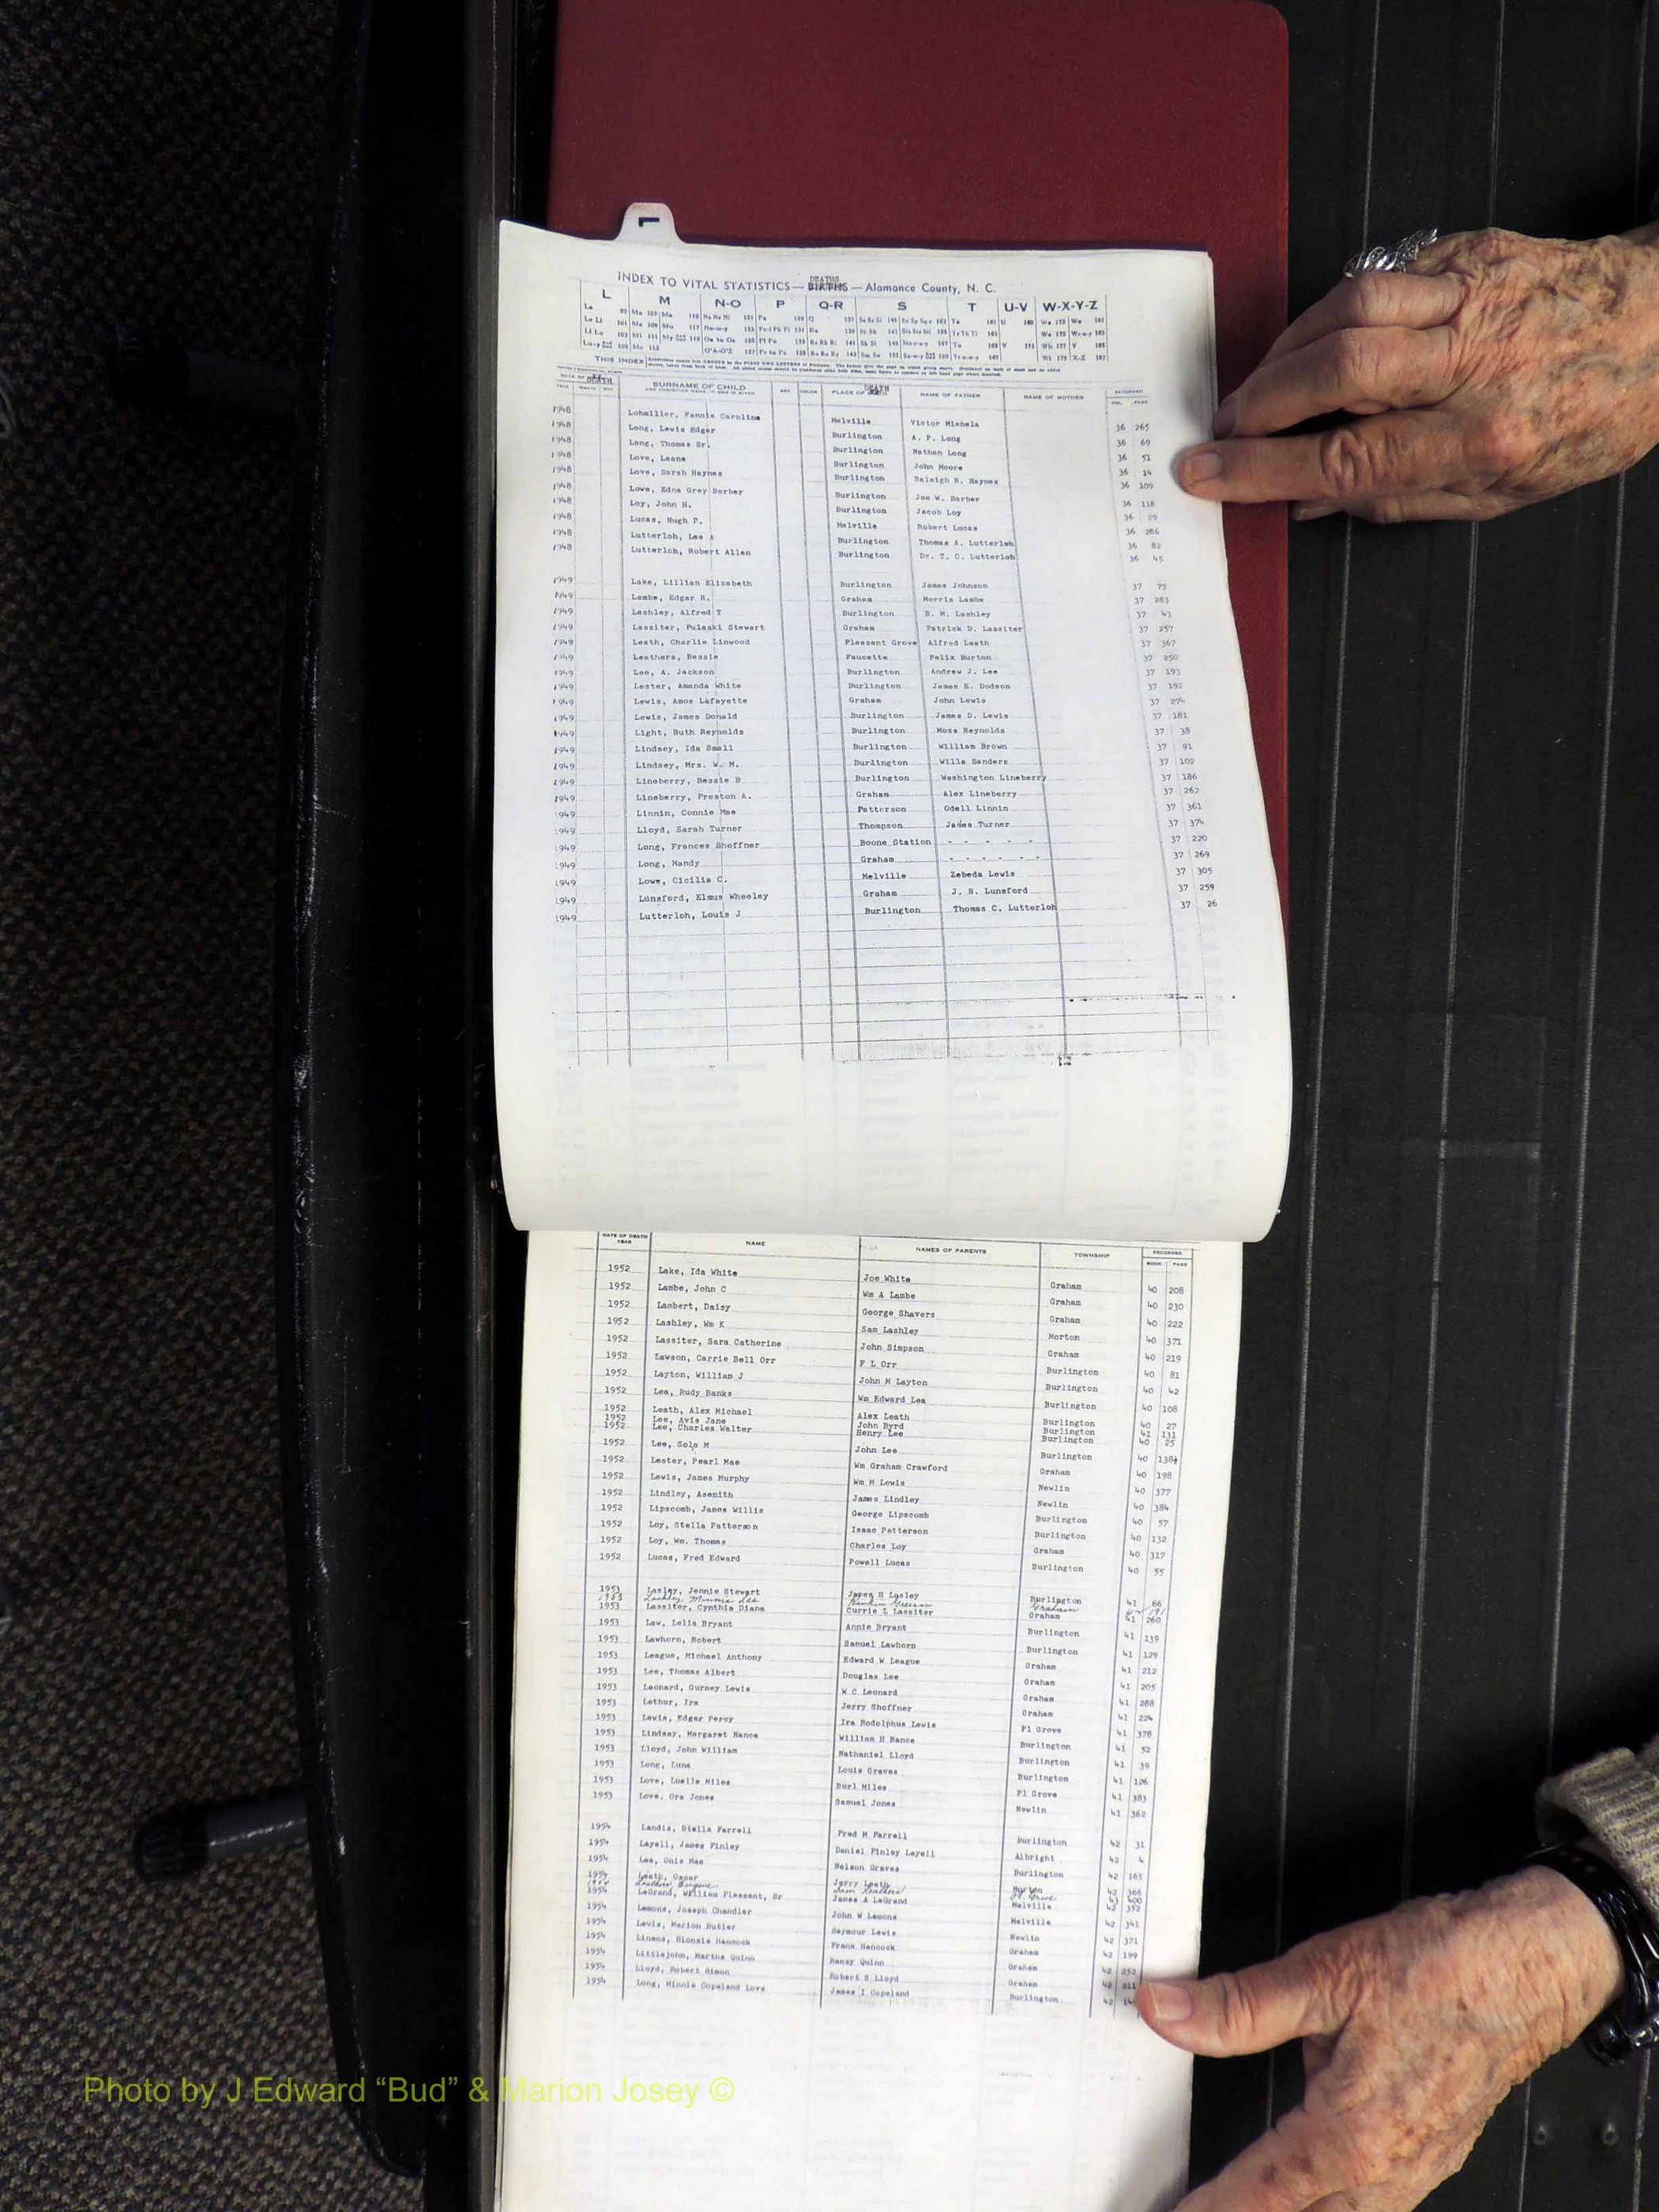 L
INDEX TO VITAL STATISTICS — DEATHS BIRTHS — Alamance County, N. C.
L M N-O P Q-R S T U-V W-X-Y-Z
THIS INDEX
DATE OF DEATH SURNAME OF CHILD SEX COLOR PLACE OF DEATH NAME OF FATHER NAME OF MOTHER RECORDED
YEAR MONTH DAY VOL. PAGE
1948 Lohmiller, Fannie Caroline Melville Victor Michels 36 265
1948 Long, Lewis Edgar Burlington A. P. Long 36 69
1948 Long, Thomas Sr. Burlington Nathan Long 36 51
1948 Love, Leane Burlington John Moore 36 14
1948 Love, Sarah Haynes Burlington Raleigh R. Haynes 36 109
1948 Lowe, Edna Grey Barber Burlington Joe W. Barber 36 118
1948 Loy, John H. Burlington Jacob Loy 36 29
1948 Lucas, Hugh P. Melville Robert Lucas 36 286
1948 Lutterloh, Lee A Burlington Thomas A. Lutterloh 36 82
1948 Lutterloh, Robert Allen Burlington Dr. T. C. Lutterloh 36 45
1949 Lake, Lillian Elizabeth Burlington James Johnson 37 75
1949 Lambe, Edgar R. Graham Morris Lambe 37 283
1949 Lashley, Alfred T Burlington B. M. Lashley 37 43
1949 Lassiter, Pulaski Stewart Graham Patrick D. Lassiter 37 257
1949 Leath, Charlie Linwood Pleasant Grove Alfred Leath 37 367
1949 Leathers, Bessie Faucette Felix Burton 37 250
1949 Lee, A. Jackson Burlington Andrew J. Lee 37 193
1949 Lester, Amanda White Burlington James E. Dodson 37 192
1949 Lewis, Amos Lafayette Graham John Lewis 37 274
1949 Lewis, James Donald Burlington James D. Lewis 37 181
1949 Light, Ruth Reynolds Burlington Moss Reynolds 37 38
1949 Lindsey, Ida Small Burlington William Brown 37 91
1949 Lindsey, Mrs. W. M. Burlington Wills Sanders 37 102
1949 Lineberry, Bessie B Burlington Washington Lineberry 37 186
1949 Lineberry, Preston A. Graham Alex Lineberry 37 262
1949 Linnin, Connie Mae Patterson Odell Linnin 37 361
1949 Lloyd, Sarah Turner Thompson James Turner 37 374
1949 Long, Frances Shoffner Boone Station - - - - - 37 220
1949 Long, Mandy Graham - - - - - - 37 269
1949 Lowe, Cicilia C. Melville Zebeda Lewis 37 305
1949 Lunsford, Elmus Wheeley Graham J. N. Lunsford 37 259
1949 Lutterloh, Louis J Burlington Thomas C. Lutterloh 37 26
DATE OF DEATH YEAR NAME NAMES OF PARENTS TOWNSHIP RECORDED
BOOK PAGE
1952 Lake, Ida White Joe White Graham 40 208
1952 Lambe, John C Wm A Lambe Graham 40 230
1952 Lambert, Daisy George Shavers Graham 40 222
1952 Lashley, Wm K Sam Lashley Morton 40 371
1952 Lassiter, Sara Catherine John Simpson Graham 40 219
1952 Lawson, Carrie Bell Orr F L Orr Burlington 40 81
1952 Layton, William J John M Layton Burlington 40 42
1952 Lea, Rudy Banks Wm Edward Lea Burlington 40 108
1952 Leath, Alex Michael Alex Leath Burlington 40 27
1952 Lee, Avis Jane John Byrd Burlington 41 131
1952 Lee, Charles Walter Henry Lee Burlington 40 25
1952 Lee, Sola M John Lee Burlington 40 138½
1952 Lester, Pearl Mae Wm Graham Crawford Graham 40 198
1952 Lewis, James Murphy Wm M Lewis Newlin 40 377
1952 Lindley, Asenith James Lindley Newlin 40 384
1952 Lipscomb, James Willis George Lipscomb Burlington 40 57
1952 Loy, Stella Patterson Isaac Patterson Burlington 40 132
1952 Loy, Wm. Thomas Charles Loy Graham 40 317
1952 Lucas, Fred Edward Powell Lucas Burlington 40 55
1953 Lasley, Jennie Stewart James H Lasley Burlington 41 66
1953 Lashley, Minnie Lee Graham 191
1953 Lassiter, Cynthia Diana Currie L Lassiter Graham 41 260
1953 Law, Lelia Bryant Annie Bryant Burlington 41 139
1953 Lawhorn, Robert Samuel Lawhorn Burlington 41 129
1953 League, Michael Anthony Edward W League Graham 41 212
1953 Lee, Thomas Albert Douglas Lee Graham 41 205
1953 Leonard, Gurney Lewis W C Leonard Graham 41 288
1953 Lethur, Ira Jerry Shoffner Graham 41 224
1953 Lewis, Edgar Percy Ira Rodolphus Lewis Pl Grove 41 378
1953 Lindsay, Margaret Nance William H Nance Burlington 41 52
1953 Lloyd, John William Nathaniel Lloyd Burlington 41 39
1953 Long, Luna Louis Graves Burlington 41 126
1953 Love, Luella Miles Burl Miles Pl Grove 41 383
1953 Love, Ora Jones Samuel Jones Newlin 41 362
1954 Landis, Stella Farrell Fred M Farrell Burlington 42 31
1954 Layell, James Finley Daniel Finley Layell Albright 42 4
1954 Lea, Onie Mae Nelson Graves Burlington 42 165
1954 Leath, Oscar Jerry Leath Morton 42 366
Leathers, Eugene Sam Leathers 400
1954 LeGrand, William Pleasant, Sr James A LeGrand Melville 42 352
1954 Lemons, Joseph Chandler John W Lemons Melville 42 341
1954 Lewis, Marion Butler Seymour Lewis Newlin 42 371
1954 Linens, Blonsie Hancock Frank Hancock Graham 42 199
1954 Littlejohn, Martha Quinn Haney Quinn Graham 42 252
1954 Lloyd, Robert Simon Robert S Lloyd Graham 42 211
1954 Long, Minnie Copeland Love James I Copeland Burlington 42
Photo by J Edward “Bud” & Marion Josey ©